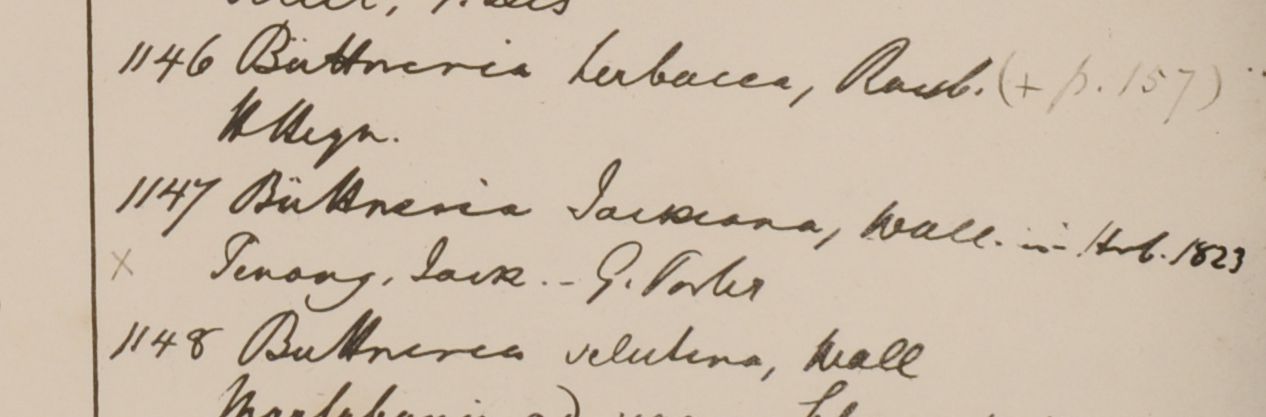 1146 Büttneria herbacea, Roxb. (+ p. 157)
H Heyn.
1147 Büttneria Jackiana, Wall. in Herb. 1823
x Penang, Jack. - G. Porter
1148 Buttneria velutina, Wall